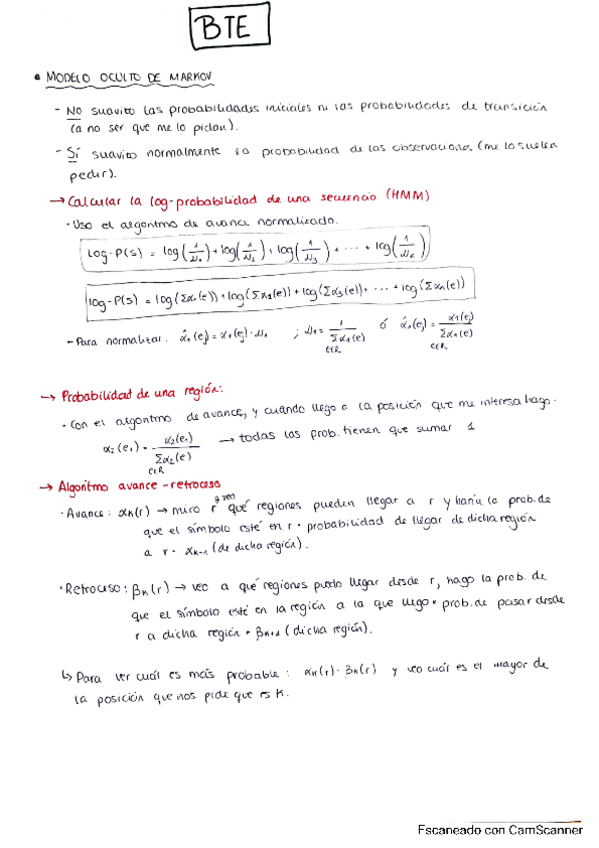 BTE
• MODELO OCULTO DE MARKOV
- No suavizo las probabilidades iniciales ni las probabilidades de transición
(a no ser que me lo pidan).
- Sí suavizo normalmente la probabilidad de las observaciones (me lo suelen
pedir).
→ Calcular la log-probabilidad de una secuencia (HMM)
· Uso el algoritmo de avance normalizado.
log-P(s) = log(1/N₁) + log(1/N₂) + log(1/N₃) + ... + log(1/Nₖ)
log-P(s) = log(Σα₁(e)) + log(Σα₂(e)) + log(Σα₃(e)) + ... + log(Σαₖ(e))
- Para normalizar: α̂₁(eⱼ) = α₁(eⱼ) · N₁ ; N₁ = 1/Σα₁(e) ó α̂₁(eⱼ) = α₁(eⱼ)/Σα₁(e)
e∈R e∈R
→ Probabilidad de una región:
· Con el algoritmo de avance, y cuando llego a la posición que me interesa hago.
α₂(e₁) = α₂(e₁)/Σα₂(e) → todas las prob. tienen que sumar 1
e∈R
→ Algoritmo avance-retroceso
· Avance: αₖ(r) → miro qué regiones pueden llegar a r y haría la prob. de
que el símbolo esté en r · probabilidad de llegar de dicha región
a r · αₖ₋₁ (de dicha región).
· Retroceso: βₖ(r) → veo a qué regiones puedo llegar desde r, hago la prob. de
que el símbolo esté en la región a la que llego · prob. de pasar desde
r a dicha región · βₖ₊₁ (dicha región).
↳ Para ver cuál es más probable: αₖ(r) · βₖ(r) y veo cuál es el mayor de
la posición que nos pide que es k.
Escaneado con CamScanner